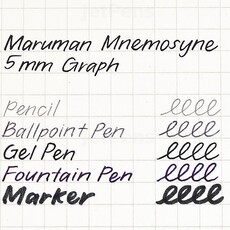 Maruman Mnemosyne
5mm Graph
Pencil
Ballpoint Pen
Gel Pen
Fountain Pen
Marker